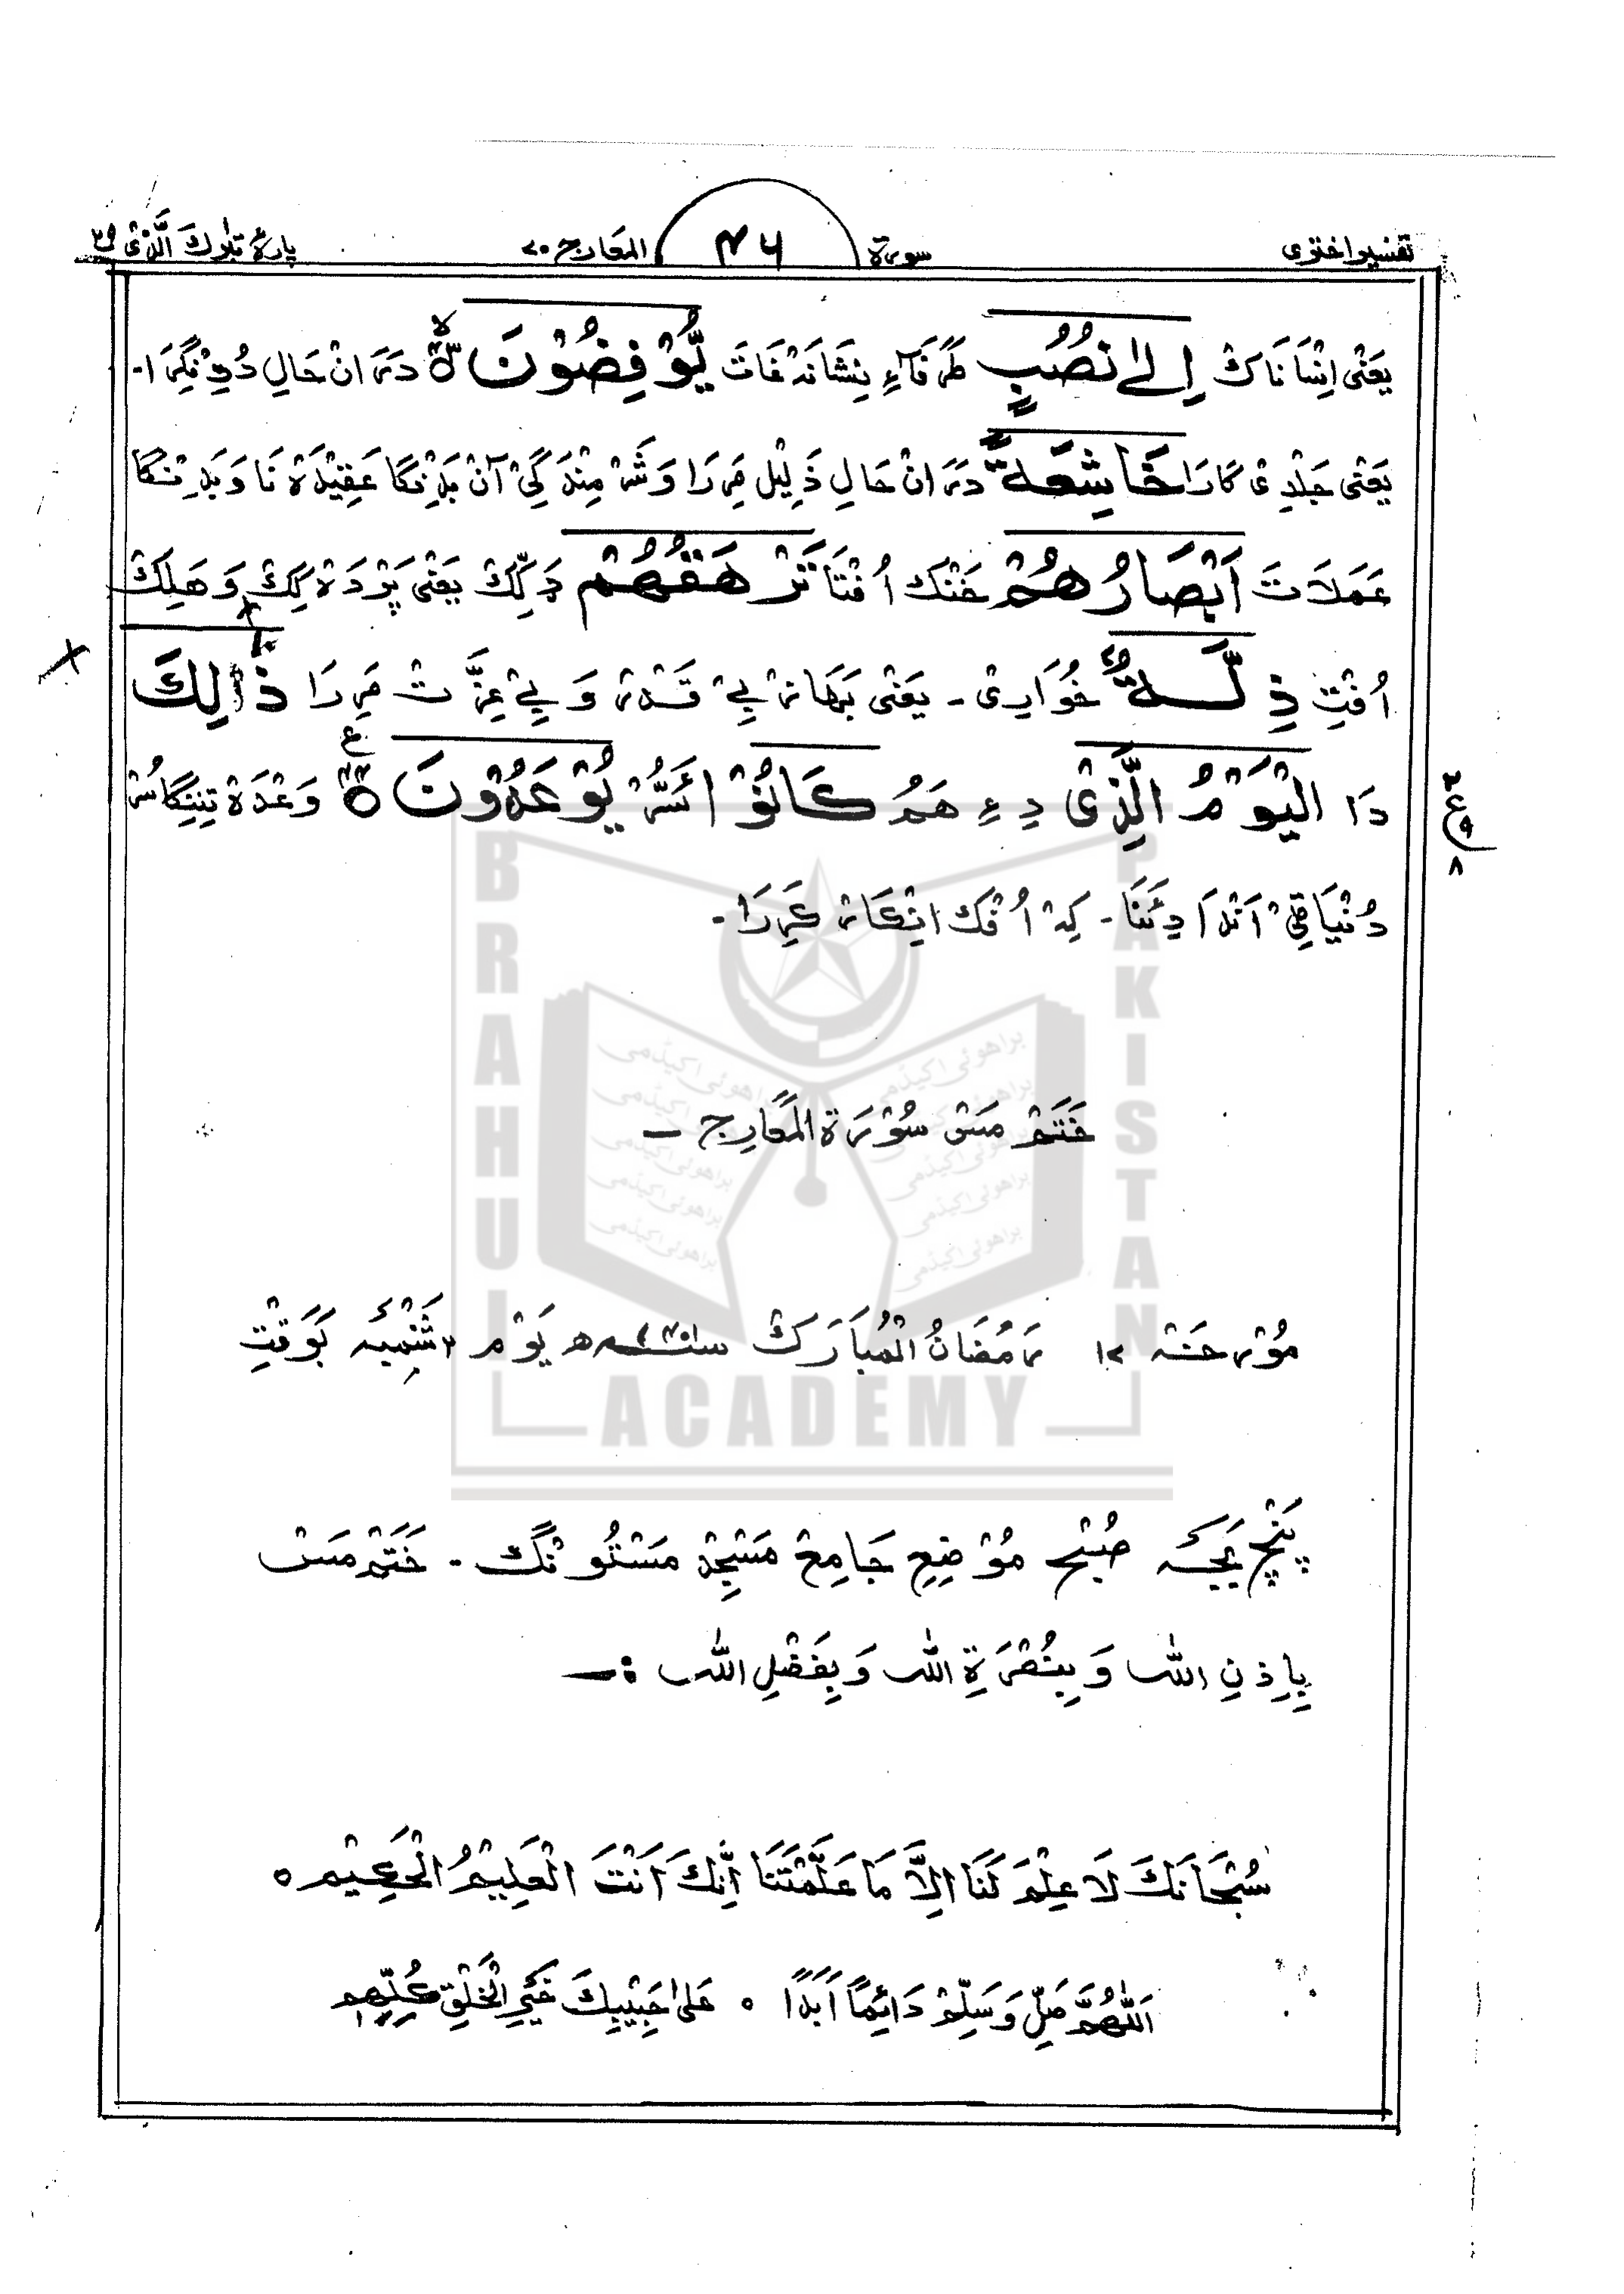 تفسیر اختری سورة ۴۶ المعارج ۷۰ پارۀ تبارك الَّذی ۲۹
یَعْنٰی اِنْسَانَاكْ اِلٰی نُصُبٍ طَرْفَآءِ نِشَانَہْ غَاتَ یُّوْفِضُوْنَ ۝۴۳ دَرَانْ حَالِ دُدِنْگِرَا۔
یَعْنٰی جَلْدِیْ کَارَا خَاشِعَةً دَرَانْ حَالِ ذَلِیْل مَرَرَا وَشَرْمِنْدَگِیْ آنْ بَدِنْگَا عَقِیْدَہْ نَا وَبَدِنْگَا
عَمَلَاتَ اَبْصَارُهُمْ خَنْكْ اُفْتَا تَرْهَقُهُمْ ڈَلِّكْ یَعْنٰی پَرْدَہْ کِكْ وَهَلِكْ
اُفْتِ ذِلَّةٌ خُوَارِیْ۔ یَعْنٰی بَهَازْ بِیْ قَدْرْ وَبِیْ عِزَّتْ مَرَرَا ذٰلِكَ
دَا الْیَوْمُ الَّذِیْ دِءِ هَمُ كَانُوْا اَسُّرْ یُوْعَدُوْنَ ۝۴۴ ع وَعْدَہْ تِنِنْگَاسُرْ
دُنْیَا ٹِیْ اَنْدَا دِئَنَا۔ کِہْ اُفْكْ اِنْکَارْ کَرِرَا۔
۲ ع ۹ ۸
خَتَمْ مَسْ سُوْرَةْ الْمَعَارِج ـ
مُوْرخَہْ ۱۲ رَمُضَانُ الْمُبَارَكْ سنہ ۱۴۰۱ھ یَوْمِ ۳ شَنْبَہ بَوَقْتِ
پَنْچ بَجَہ صُبْح مُوْضِعِ جَامِعْ مَسْجِدْ مَسْتُوْنگ۔ خَتَمْ مَسْ
بِاِذنِ اللہ وَبِنُصْرَةِ اللہ وَبِفَضْلِ اللہ :ـ
سُبْحَانَكَ لَا عِلْمَ لَنَا اِلَّا مَا عَلَّمْتَنَا اِنَّكَ اَنْتَ الْعَلِیْمُ الْحَكِیْم ہ
اَللّٰهُمَّ صَلِّ وَسَلِّمْ دَائِمًا اَبَدًا ہ عَلٰی حَبِیْبِكَ خَیْرِ الْخَلْقِ كُلِّهِم
BRAHUI
PAKISTAN
ACADEMY
براهوئی اکیڈمی